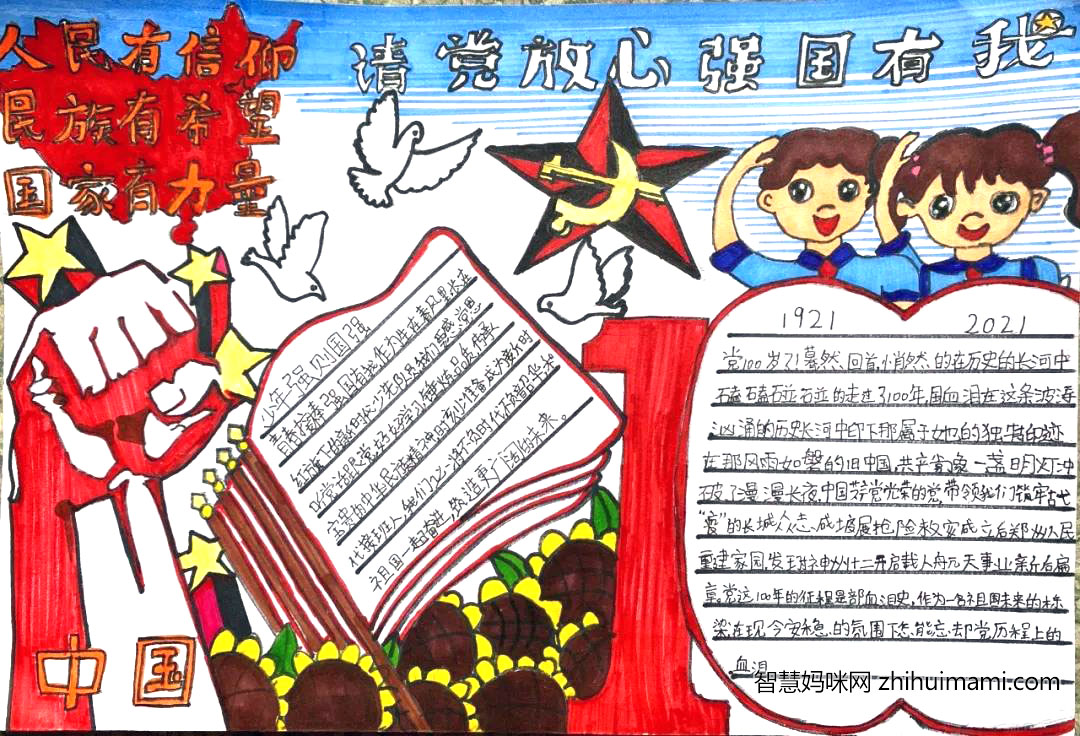 人民有信仰
民族有希望
国家有力量
请党放心强国有我
少年强则国强
青春接棒,强国有我,作为生在春风里,长在
红旗下的新时代少先队员,我们要感党恩
听党话跟党好好学习,锤炼品质,传承
宝贵的中华民族精神,时刻准备成为新时
代接班人,我们一心将不负时代不负韶华和
祖国一起奋进,改造更广阔的未来。
中国
1921 2021
党100岁了!蓦然回首,悄然的在历史的长河中
磕磕碰碰的走过了100年,用血泪在这条波涛
汹涌的历史长河中印下那属于她的独特印迹
在那风雨如磐的旧中国,共产党像一盏明灯冲
破了漫漫长夜,中国共产党光荣的党,带领我们筑牢古代
的长城众志成城展抢险救灾成立后郑州人民
重建家园,发现神州十二开启载人
党这100年的征程是部血泪史,作为一名祖国未来的栋
梁,在现今安稳的氛围下怎能忘却党历程上的
血泪
智慧妈咪网 zhihuimami.com